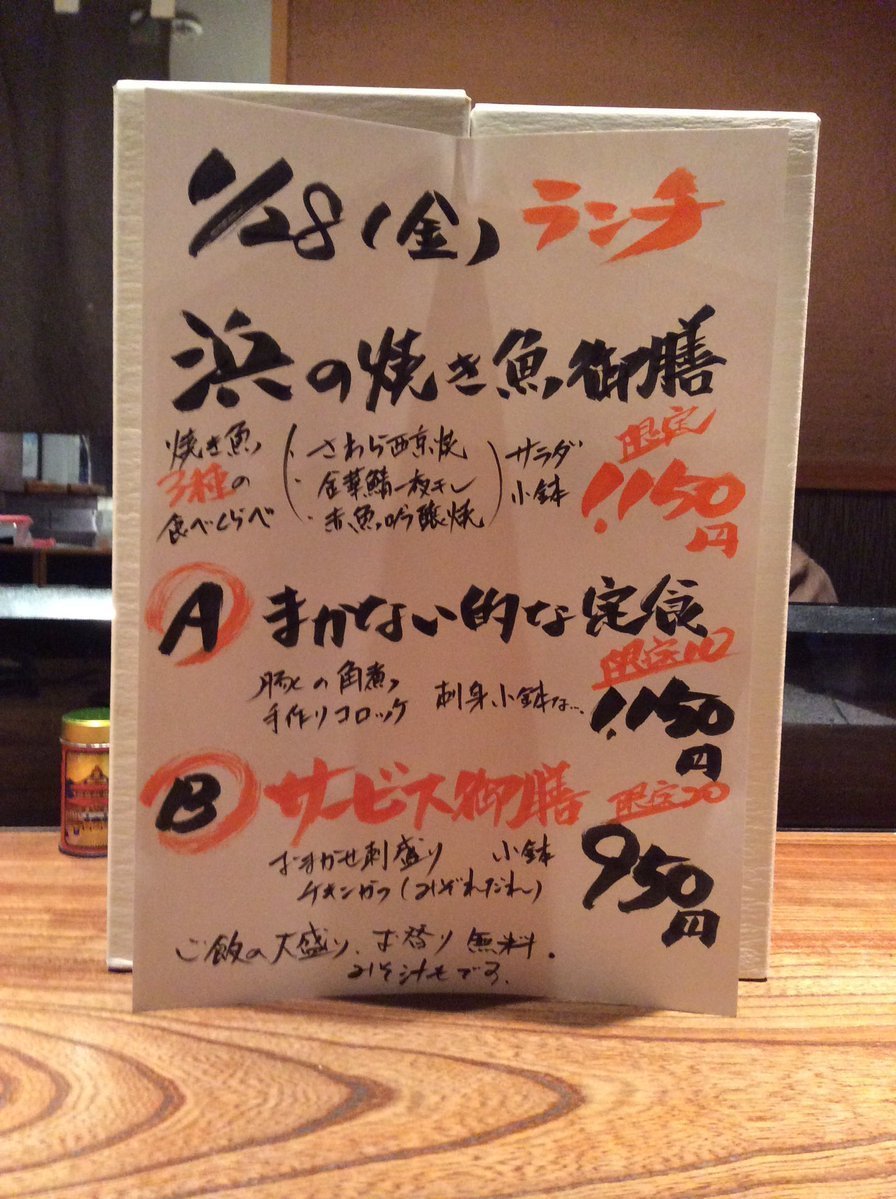 1/28(金) ランチ
浜の焼き魚御膳
焼き魚
3種の
食べくらべ
・さわら西京焼
・金華鯖一夜干し
・赤魚吟醸焼
サラダ
小鉢
限定
1,150円
A まかない的な定食
限定10
豚の角煮
手作りコロッケ
刺身 小鉢な…
1,150円
B サービス御膳
限定20
おまかせ刺盛り 小鉢
チキンかつ(みぞれだれ)
950円
ご飯の大盛り、お替り無料。
みそ汁もです。